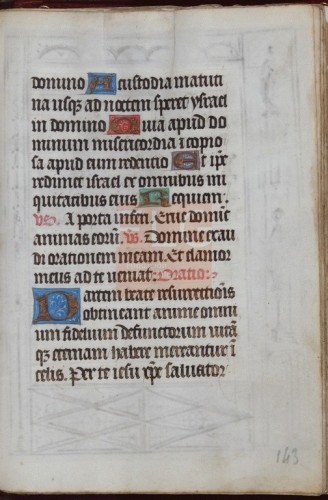 domino A custodia matuti
na usq̃ ad noctem speret ysrael
in domino Quia apud do
minum misericordia ⁊ copio
sa apud eum redentio Et ip̃e
redimet israel ex omnibus ini
quitatibus eius Requiem.
A porta inferi. Erue domie
animas eorũ. vs. Domine exau
di orationem meam. Et clamor
meus ad te veniat. Oratio:
Partem beate resurrectiõis
obtineant anime omni
um fidelium defunctorum vitã
qz eternam habere mereantur ĩ
celis. Per te iesu xp̃e salvator
143